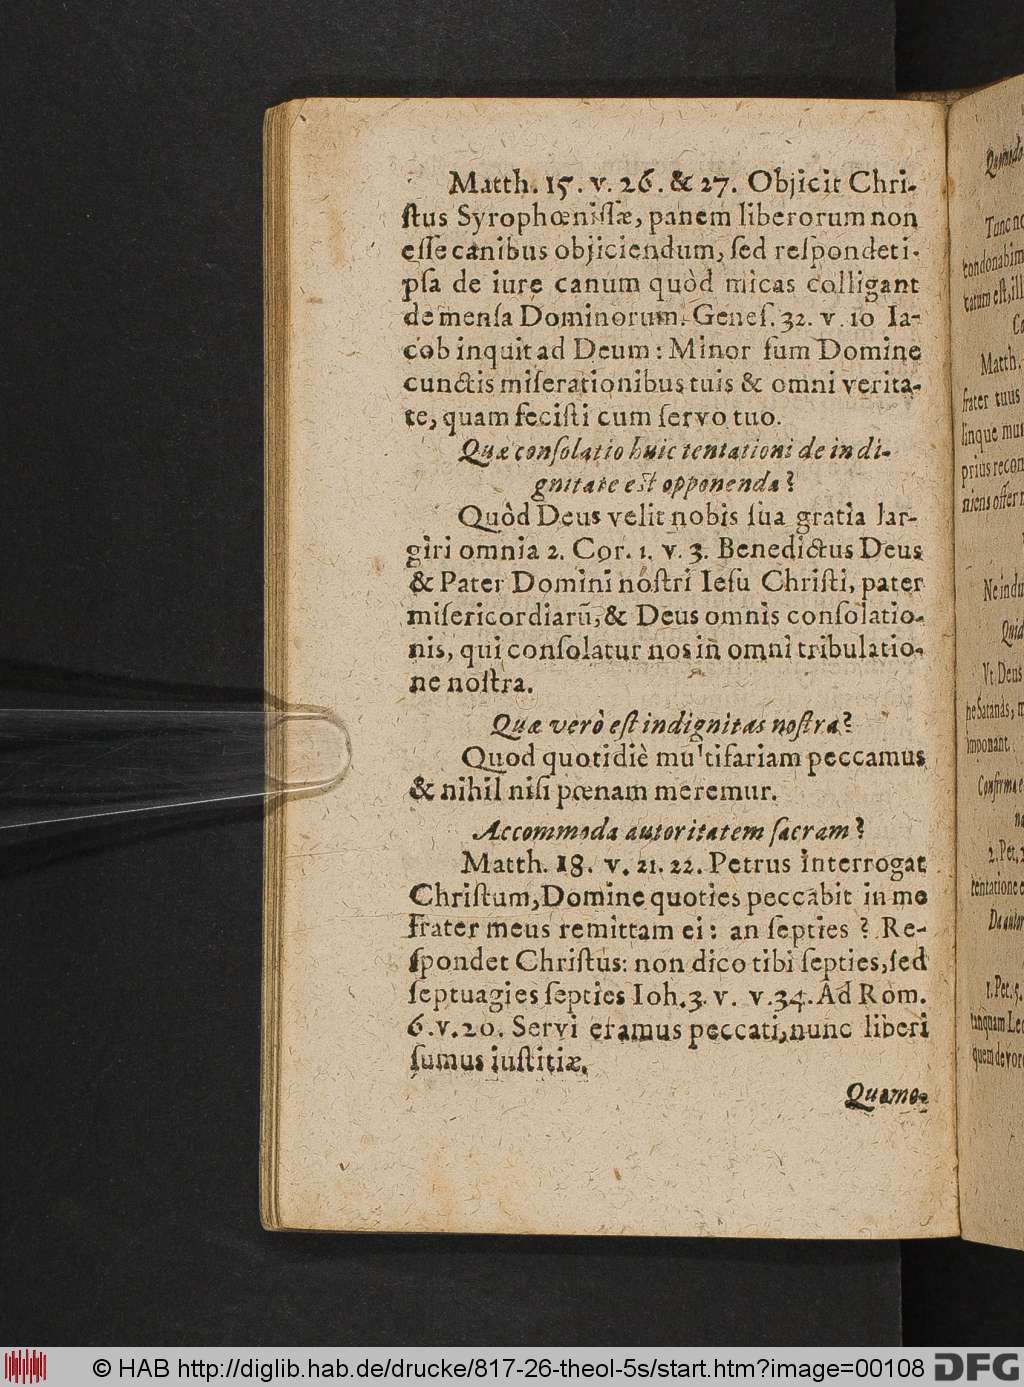 Matth. 15. v. 26. & 27. Objicit Chri-
ſtus Syrophœniſſæ, panem liberorum non
eſſe canibus objiciendum, ſed reſpondet i-
pſa de iure canum quòd micas colligant
de menſa Dominorum. Geneſ. 32. v. 10 Ia-
cob inquit ad Deum: Minor ſum Domine
cunctis miſerationibus tuis & omni verita-
te, quam feciſti cum ſervo tuo.
Quæ conſolatio huic tentationi de indi-
gnitate est opponenda?
Quòd Deus velit nobis ſua gratia lar-
giri omnia 2. Cor. 1. v. 3. Benedictus Deus
& Pater Domini noſtri Ieſu Chriſti, pater
miſericordiarũ, & Deus omnis conſolatio-
nis, qui conſolatur nos in omni tribulatio-
ne noſtra.
Quæ verò eſt indignitas noſtra?
Quod quotidiè multifariam peccamus
& nihil niſi pœnam meremur.
Accommoda autoritatem ſacram?
Matth. 18. v. 21. 22. Petrus interrogat
Chriſtum, Domine quoties peccabit in me
Frater meus remittam ei: an ſepties? Re-
ſpondet Chriſtus: non dico tibi ſepties, ſed
ſeptuagies ſepties Ioh. 3. v. v. 34. Ad Rom.
6. v. 20. Servi eramus peccati, nunc liberi
ſumus iuſtitiæ.
Quomo-
Quomodo
Tunc
condonabim
tatum eſt, ill
Matth.
frater tuus
linque mu
prius recon
niens offer
Ne indu
Quid
Vt Deus
he Satanas,
imponant.
Confirma
2. Pet.
tentatione
Da autor
1. Pet. 5.
tanquam Leo
quem devor
© HAB http://diglib.hab.de/drucke/817-26-theol-5s/start.htm?image=00108
DFG